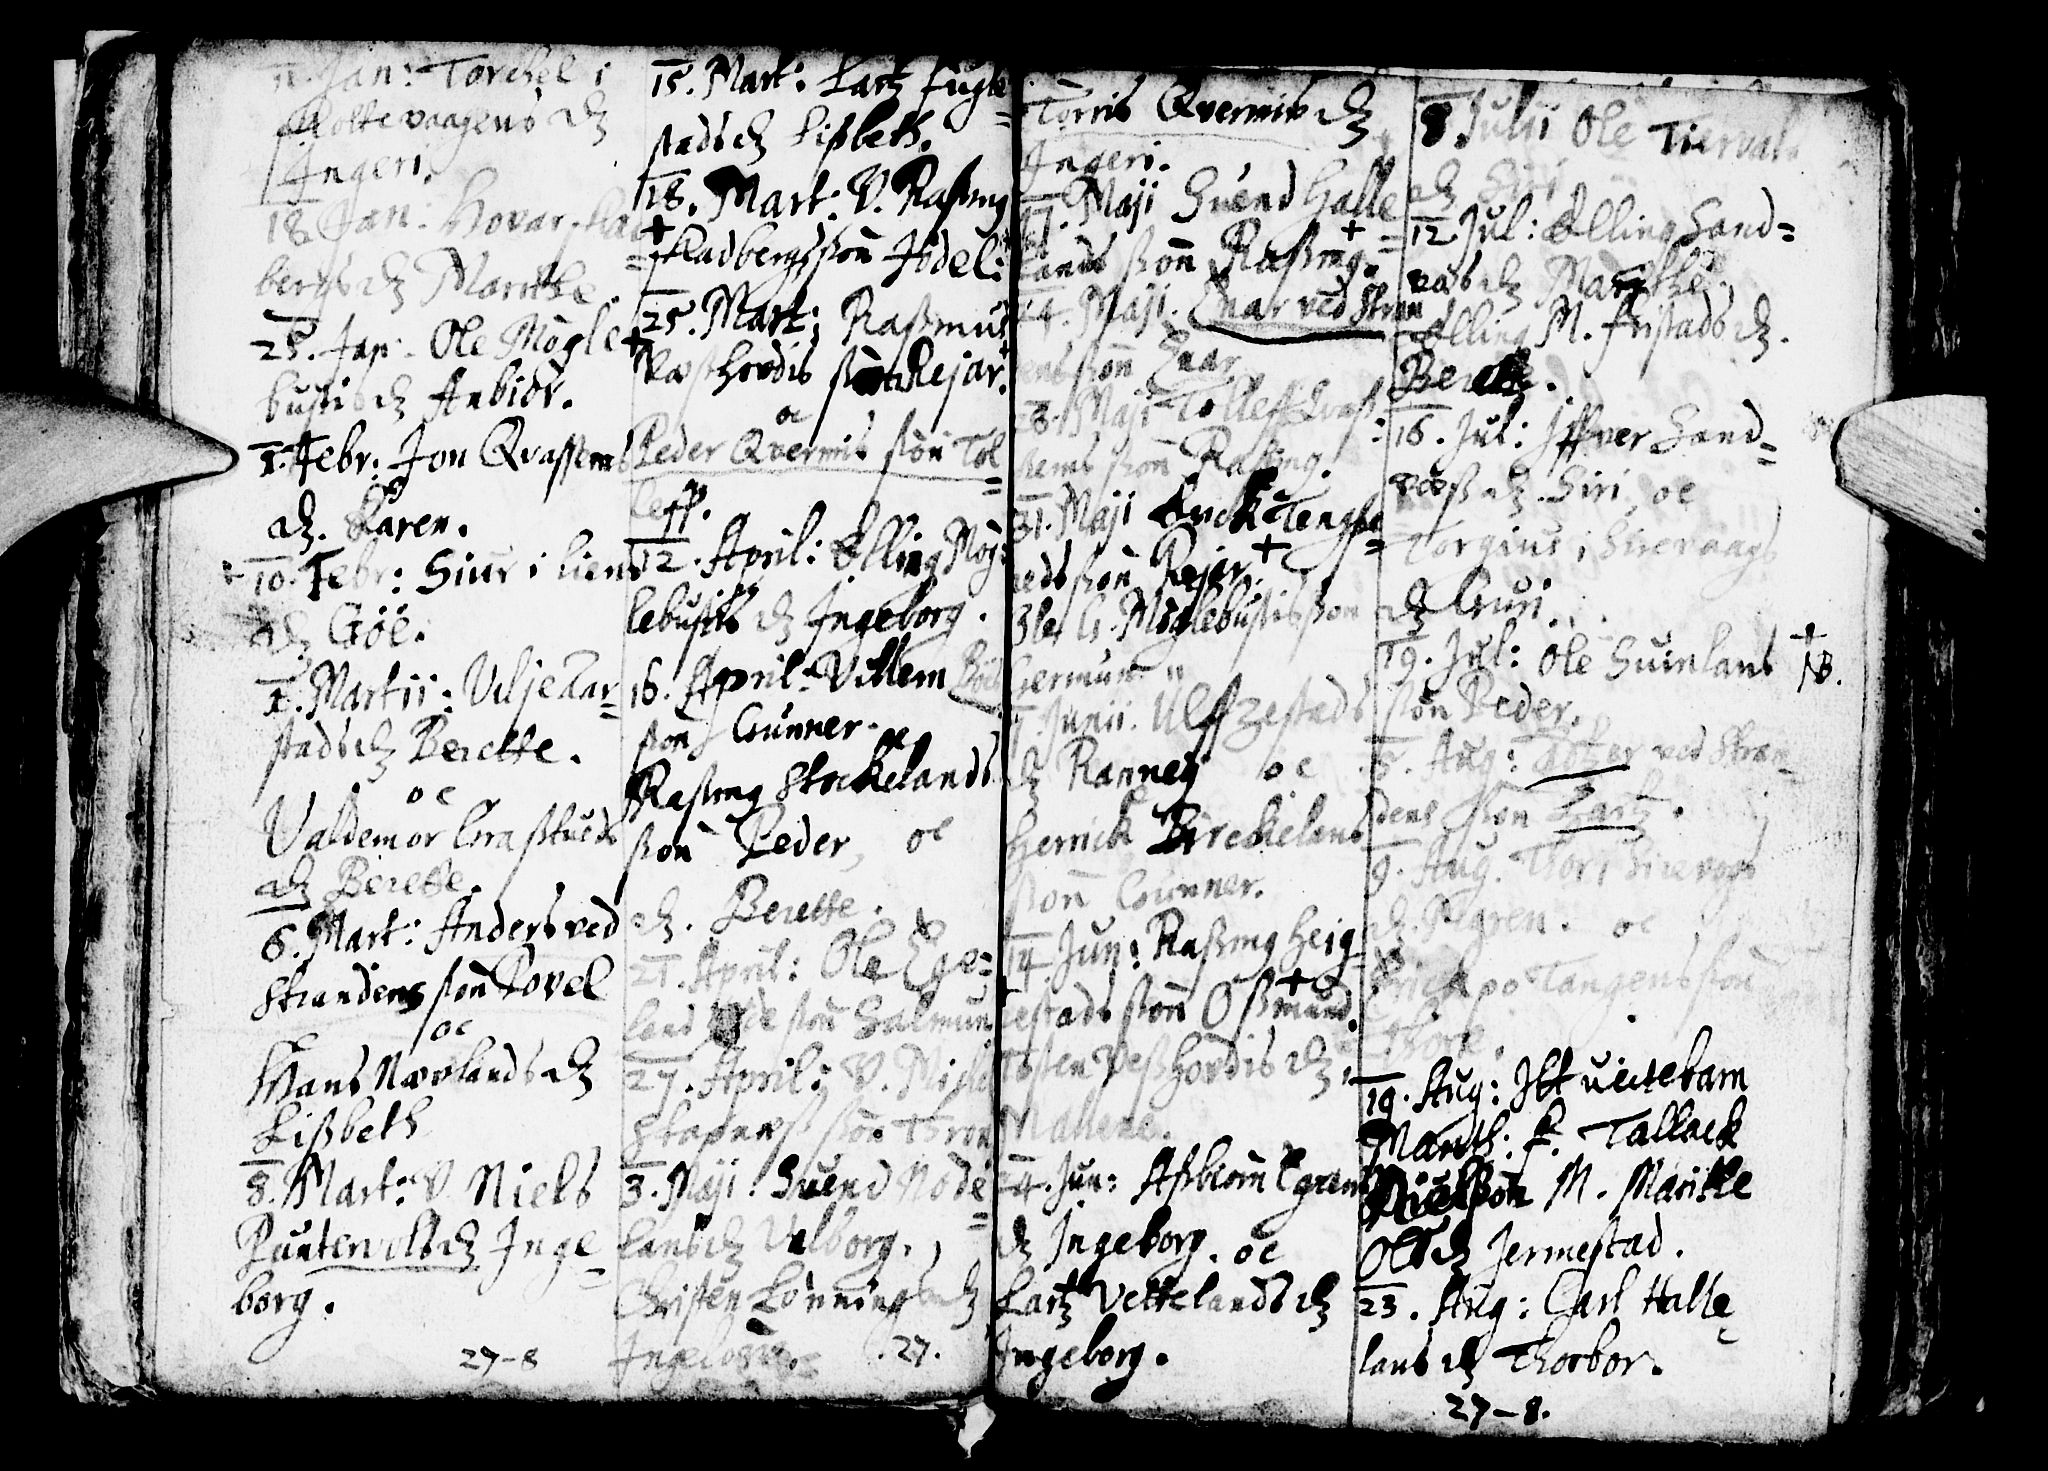 11. Jan: Torchel i
Holtevaagens dʒ
Ingeri.
18 Jan: Hovar
bergs dʒ Maritte.
25. Jan. Ole Mögle
bustis dʒ Anbiör.
1. Febr: Jon Qvassems
dʒ. Karen.
10. Febr: Siur i Liens
dʒ Göe.
1. Martii: Vilje Aar=
stads dʒ Berette.
oc
Valdemor
dʒ Berette.
6. Mart: Anders ved
Strandens sßon Povel
oc
Hans Nærlands dʒ
Lißbeth
8. Mart: V. Niels
Puntervolds dʒ Inge=
borg.
27-8
15. Mart: Lartz Fugle=
stads dʒ Lißbeth.
18. Mart: V. Raßmg
=Kladbergs sßon Jödel:
25. Mart: Raßmus
Hordis Rejar.
oc
Peder Qvermis sßon Tol=
leff.
12. April: Elling Mög=
lebustis dʒ Ingeborg.
16. April: Villem
sßon Gunner. oc
Raßmg Stockelands
sßon Peder, oc
dʒ. Berette.
21. April: Ole Ege=
lands sßon Salmun
27. April: V.
sßon Tron
3. Maji. Suend Nöde=
lands dʒ Valborg.
Christen Lönning dʒ
Ingeborg.
.27.
Torris Qvermis dʒ
Ingeri.
17. Maji Suend Halle=
lands sßon Raßmg.
24. Maji. Enar ved Stran
ens sßon Enar
28. Maji Tolleff Qvass:
sems sßon Raßmg.
31. Maji Erick Tengs=
reds sßon Rejer
G. Möglebustis sßon
Germun
1. Junii.
dʒ Ranney oc
Herrick Birckelands
sßon Gunner.
14 Jun: Raßmg Heig=
restads sßon Oßmund.
Osten Veßhordis dʒ
Mallene.
24. Jun: Aßbiörn Egrems
dʒ Ingeborg. oc
Lartz Vettelands dʒ
Ingeborg.
8 Julii Ole Tierval
dʒ Siri
12 Jul: Elling Sand=
væs dʒ Maritte.
Elling M. Fristads dʒ.
Berette.
16. Jul: Iffver Sand=
væß dʒ. Siri, oc
Torgius i Sirevaags
dʒ Guri.
19. Jul: Ole Suinlans
NB.
sßon Peder.
5. Aug: ved Stran=
dens sßon Lartz.
9. Aug. Thori Sirevogs
dʒ. Karen. oc
Erick po Tangens sßon
Thore.
19. Aug: It uectebarn
Marith: F. Tallack
Nielsßon M. Maritte
Olsdʒ Jermestad.
23. Aug: Carl Halle=
lans dʒ Thorbor.
27-8.